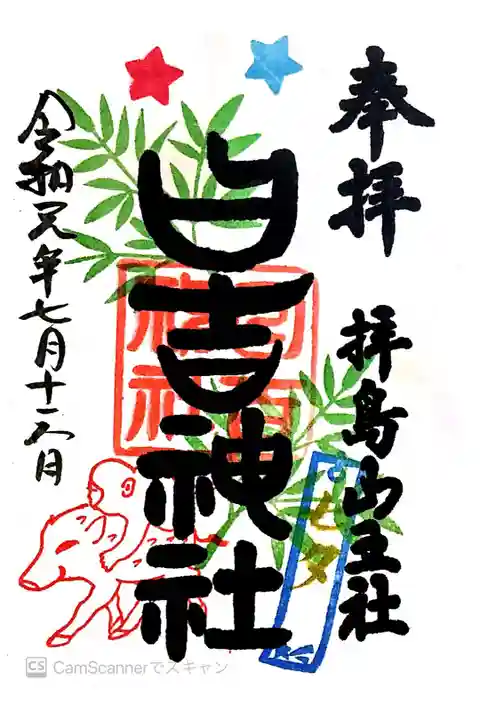 奉拝
拝島山王社
日吉神社
令和元年七月十六日
七夕
CS CamScannerでスキャン